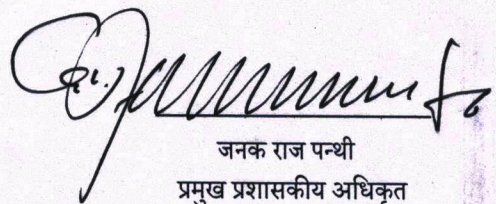 जनक राज पन्थी
प्रमुख प्रशासकीय अधिकृत